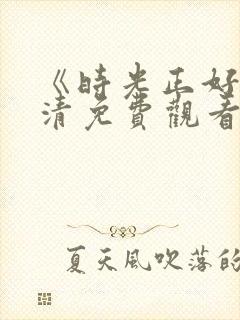 《時光正好
清免費觀看
夏天風吹落的